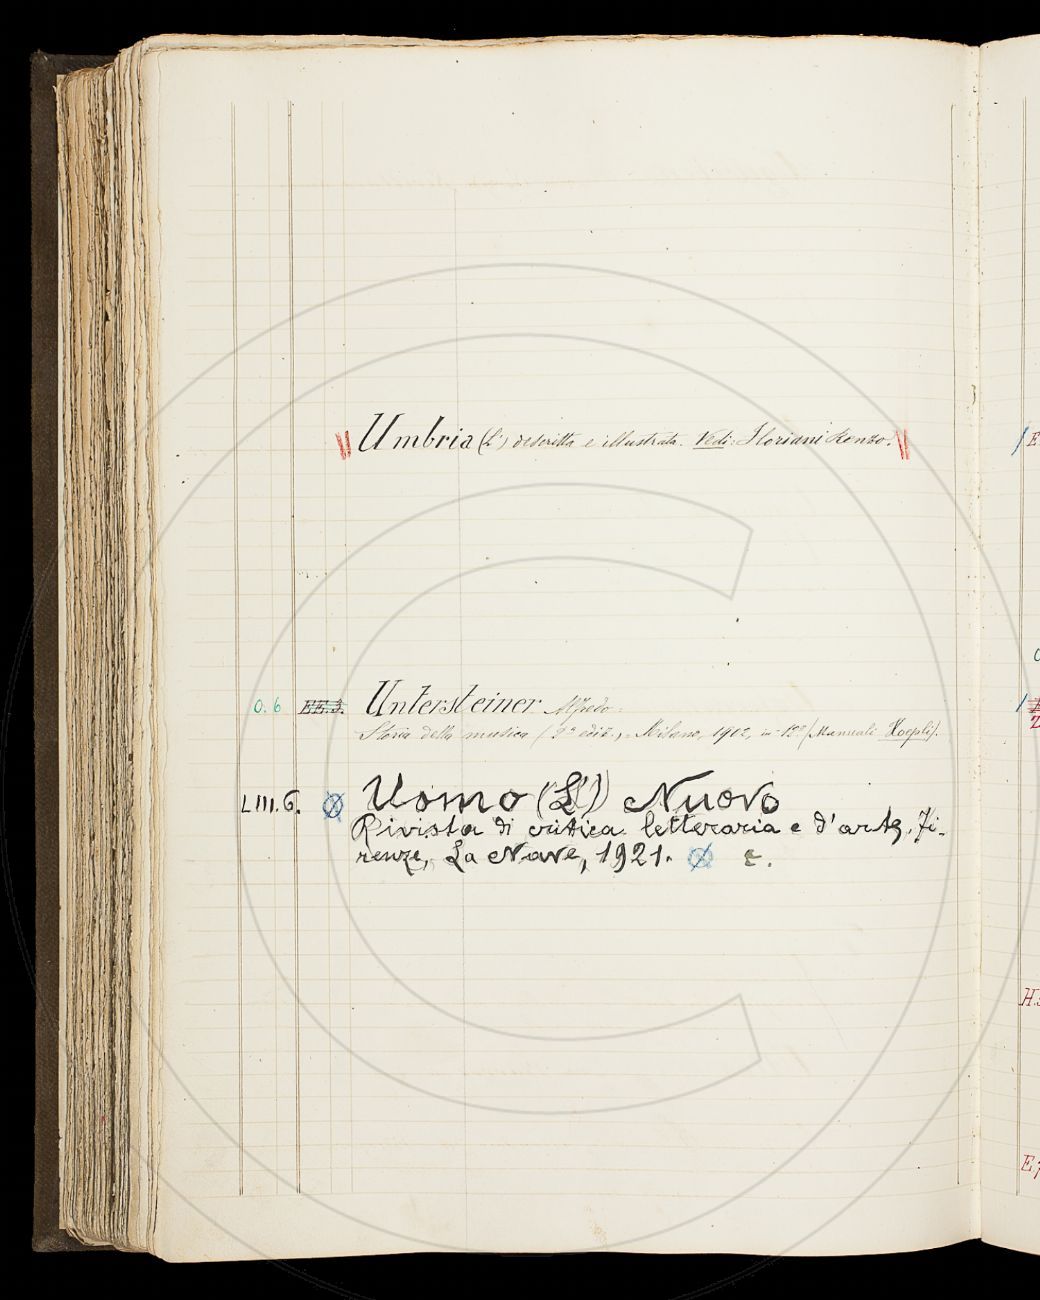 Umbria (L') descritta e illustrata. Vedi: Floriani Renzo.
O. 6 EE.3. Untersteiner Alfredo.
Storia della musica (2ª ediz.), Milano, 1902, in-12º (Manuali Hoepli).
LIII.6. Uomo (L') Nuovo
Rivista di critica letteraria e d'arte, Fi-
renze, La Nave, 1921. E.